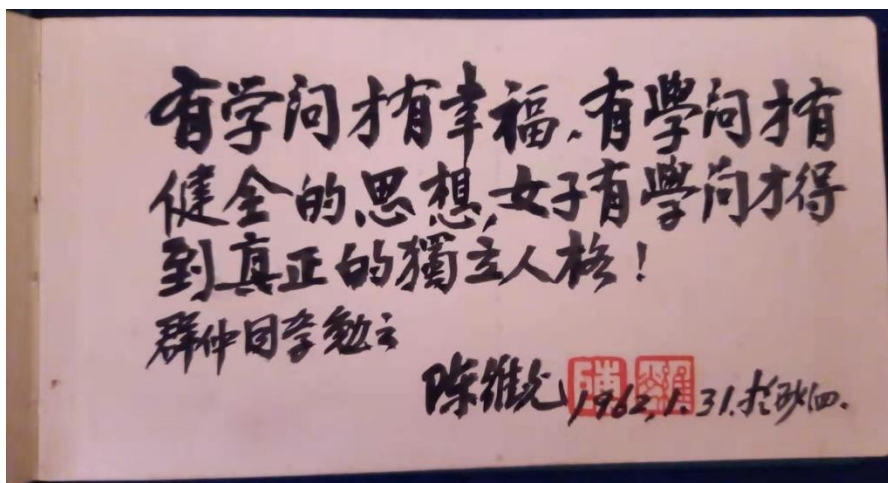 有学问才有幸福，有學问才有
健全的思想，女子有學问才得
到真正的獨立人格！
群仲同学勉之
陈維
1962.1.31.於砂